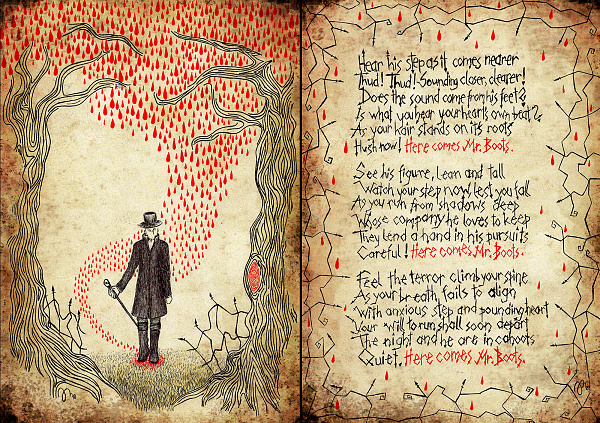 Hear his step as it comes nearer
Thud! Thud! Sounding closer, clearer!
Does the sound come from his feet?
Is what you hear your heart's own beat?
As your hair stands on its roots
Hush now! Here comes Mr. Boots.
See his figure, lean and tall
Watch your step now lest you fall
As you run from shadows deep
Whose company he loves to keep
They lend a hand in his pursuits
Careful! Here comes Mr. Boots.
Feel the terror climb your spine
As your breath fails to align
With anxious step and pounding heart
Your will to run shall soon depart
The night and he are in cahoots
Quiet. Here comes Mr. Boots.